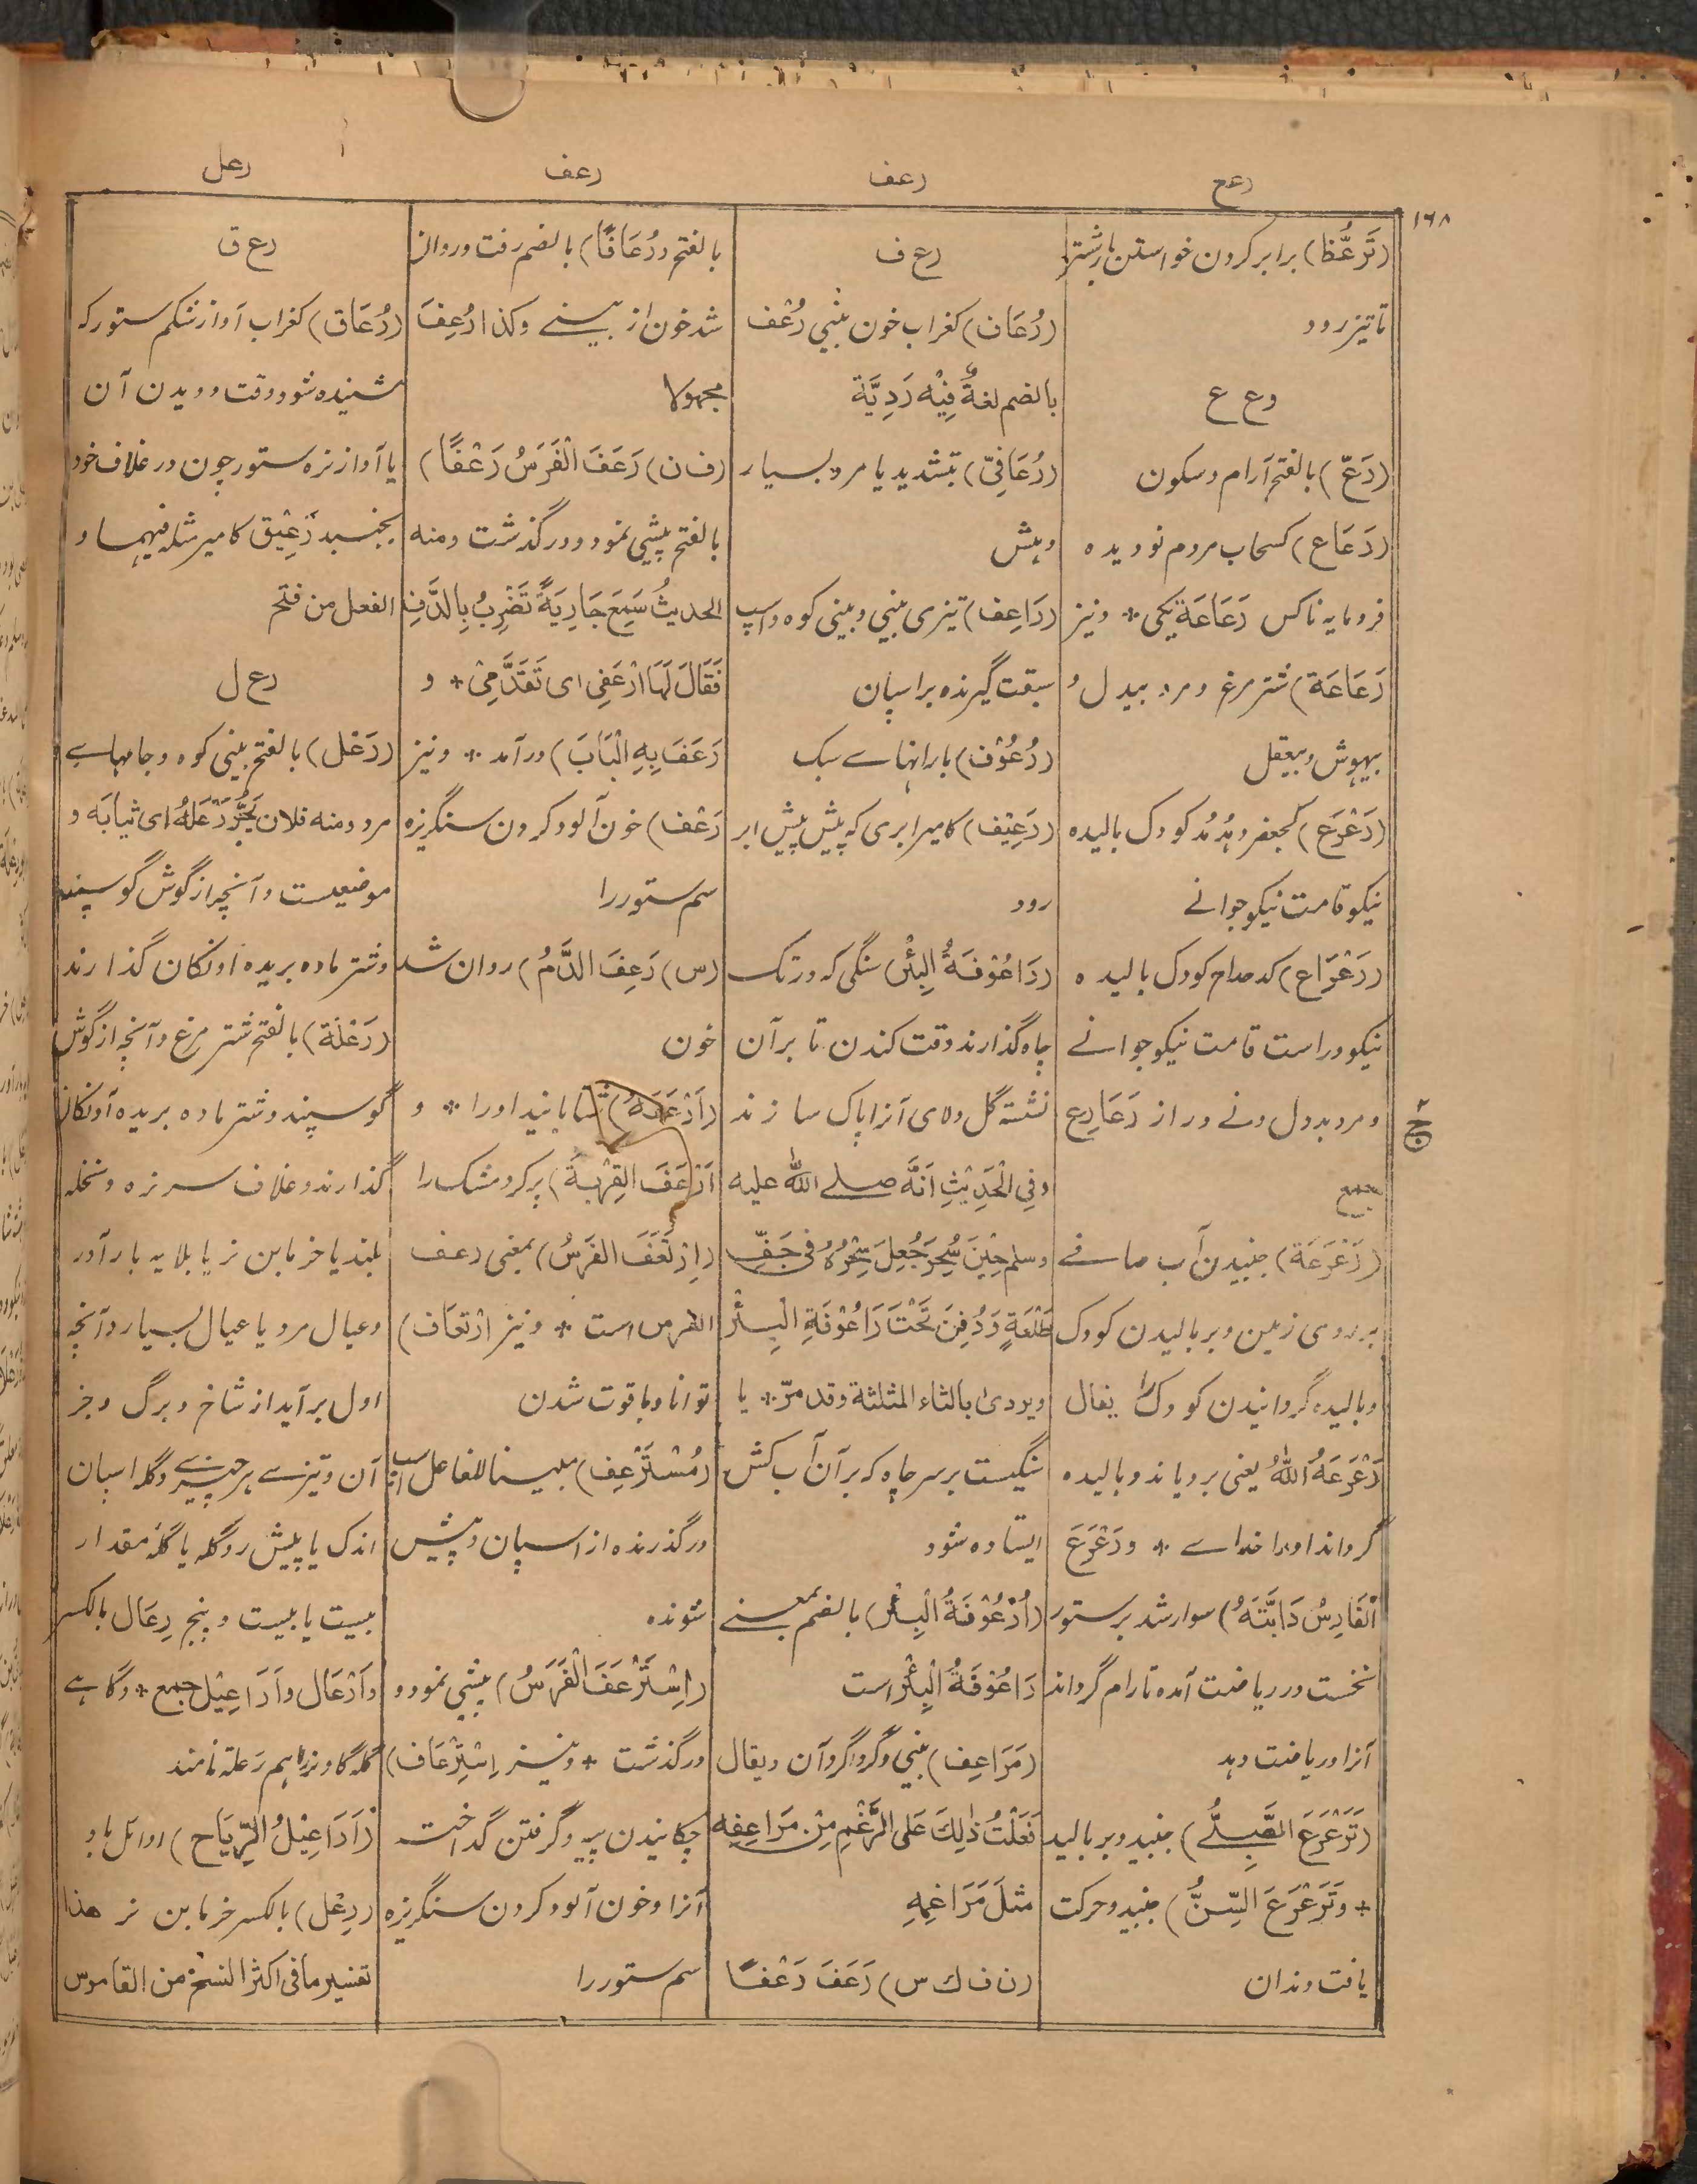 رعع
رعف
رعف
رعل
۱۶۸
(تَرَعُّظ) برابر کردن خواستن باشتر
تا تیز رود
ر ع ع
(رَعّ) بالفتح آرام و سکون
(رَعَاع) کسحاب مردم نو دیده
فرومایه ناکس رَعَاعَة یکی * و نیز
رَعَاعَة) شتر مرغ و مرد بیدل و
بیهوش و بیعقل
(رَعْرَع) کجعفر و هُدهُد کودک بالیده
نیکو قامت نیکو جوانے
(رَعْرَاع) کدحداح کودک بالیده
نیکو و راست قامت نیکو جوانے
و مرد بددل و نے دراز رَعَارِع
جمع
(رَعْرَعَة) جنبیدن آب صافے
بر روی زمین و بر بالیدن کودک
و بالیده گردانیدن کودک را یقال
رَعْرَعَهُ اللّٰهُ یعنی برویاند و بالیده
گرداند او را خداے * و رَعْرَعَ
الْفَارِسُ دَابَّتَهُ) سوار شد بر ستور
نخست در ریاضت آمده تا رام گرداند
آنرا و ریاضت دهد
(تَرَعْرَعَ الصَّبِیُّ) جنبید و بر بالید
* وَتَرَعْرَعَ السِّنُّ) جنبید و حرکت
یافت دندان
ر ع ف
(رُعَاف) کغراب خون بینی رُعْف
بالضم لغةٌ فِیْهِ رَدِیَّة
(رُعَافِیّ) بتشدید یا مرد بسیار
دهش
(رَاعِف) تیزی بینی و بینی کوه و اسپ
سبقت گیرنده بر اسپان
(رُعُوْف) بارانهاے سبک
(رَعِیْف) کامیر ابری که پیش پیش ابر
رود
(رَاعُوْفَةُ الْبِئْرِ) سنگی که در تک
چاه گذارند وقت کندن تا بر آن
نشسته گل و لای آنرا پاک سازند
وفِی الْحَدِیْثِ اَنَّه صلے اللّٰه علیه
وسلم حِیْنَ سُحِرَ جُعِلَ سِحْرُهُ فی جَفِّ
طَلْعَةٍ وَدُفِنَ تَحْتَ رَاعُوْفَةِ الْبِئْر
ویروی بالثاء المثلثة وقد مرّ * یا
سنگیست بر سر چاه که بر آن آب کش
ایستاده شود
(اُرْعُوْفَةُ الْبِئْر) بالضم بمعنے
رَاعُوْفَةُ الْبِئْر است
(مَرَاعِف) بینی و گرداگرد آن ویقال
فَعَلْتُ ذٰلِكَ عَلَی الرَّغْمِ مِنْ مَرَاعِفِه
مثلَ مَرَاغِمِهِ
(ن ف ك س) رَعَفَ رَعْفًا
بالفتح ورُعَافًا) بالضم رفت و روان
شد خون از بینے وکذا رُعِفَ
مجهولا
(ف ن) رَعَفَ الْفَرَسُ رَعْفًا)
بالفتح پیشی نمود و در گذشت ومنه
الحدیثُ سَمِعَ جَارِیَةً تَضْرِبُ بِالدَّفِّ
فَقَالَ لَهَا ارْعَفِی ای تَقَدَّمِیْ * و
رَعَفَ بِهِ الْبَابَ) در آمد * و نیز
رَعْف) خون آلود کردن سنگریزه
سم ستور را
(س) رَعِفَ الدَّمُ) روان شد
خون
(اَرْعَفَهُ) شتابانید او را * و
اَرْعَفَ القِرْبَةَ) پر کرد مشک را
(اِرْتَعَفَ الفَرَسُ) بمعنی رعف
الفرس است * و نیز ارْتِعَاف)
توانا و باقوت شدن
(مُسْتَرْعِف) مبینا للفاعل اسپ
در گذرنده از اسپان و پیش
شونده
(اِسْتَرْعَفَ الْفَرَسُ) پیشی نمود و
در گذشت * و نیز اِسْتِرْعَاف)
چکانیدن پیه و گرفتن گداخت
آنرا و خون آلود کردن سنگریزه
سم ستور را
ر ع ق
(رُعَاق) کغراب آواز شکم ستور که
شنیده شود وقت دویدن آن
یا آواز نره ستور چون در غلاف خود
بجنبد رَعِیْق کامیر مثله فیهما و
الفعل من فتح
ر ع ل
(رَعْل) بالفتح بینی کوه و جامهاے
مرد ومنه فلان یَجُرُّ رَعْلَهُ ای ثیابَه و
موضعیست و آنچه از گوش گوسپند
و شتر ماده بریده آونگان گذارند
(رَعْلَة) بالفتح شتر مرغ و آنچه از گوش
گوسپند و شتر ماده بریده آونگان
گذارند و غلاف سر نره و نخله
بلند یا خرمابن نر یا بلایه بار آور
و عیال مرد یا عیال بسیار و آنچه
اول بر آید از شاخ و برگ و جز
آن و تیزے هر چیزے و گله اسپان
اندک یا پیش رو گله یا گلهٔ مقدار
بیست یا بیست و پنج رِعَال بالکسر
وَاَرْعَال وَاَرَاعِیْل جمع * و گاہے
گله گاو نر را هم رَعلة نامند
(اَرَاعِیْلُ الرِّیَاح) اوائل باد
(رِعْل) بالکسر خرمابن نر هذا
تفسیر ما فی اکثر النسخ من القاموس